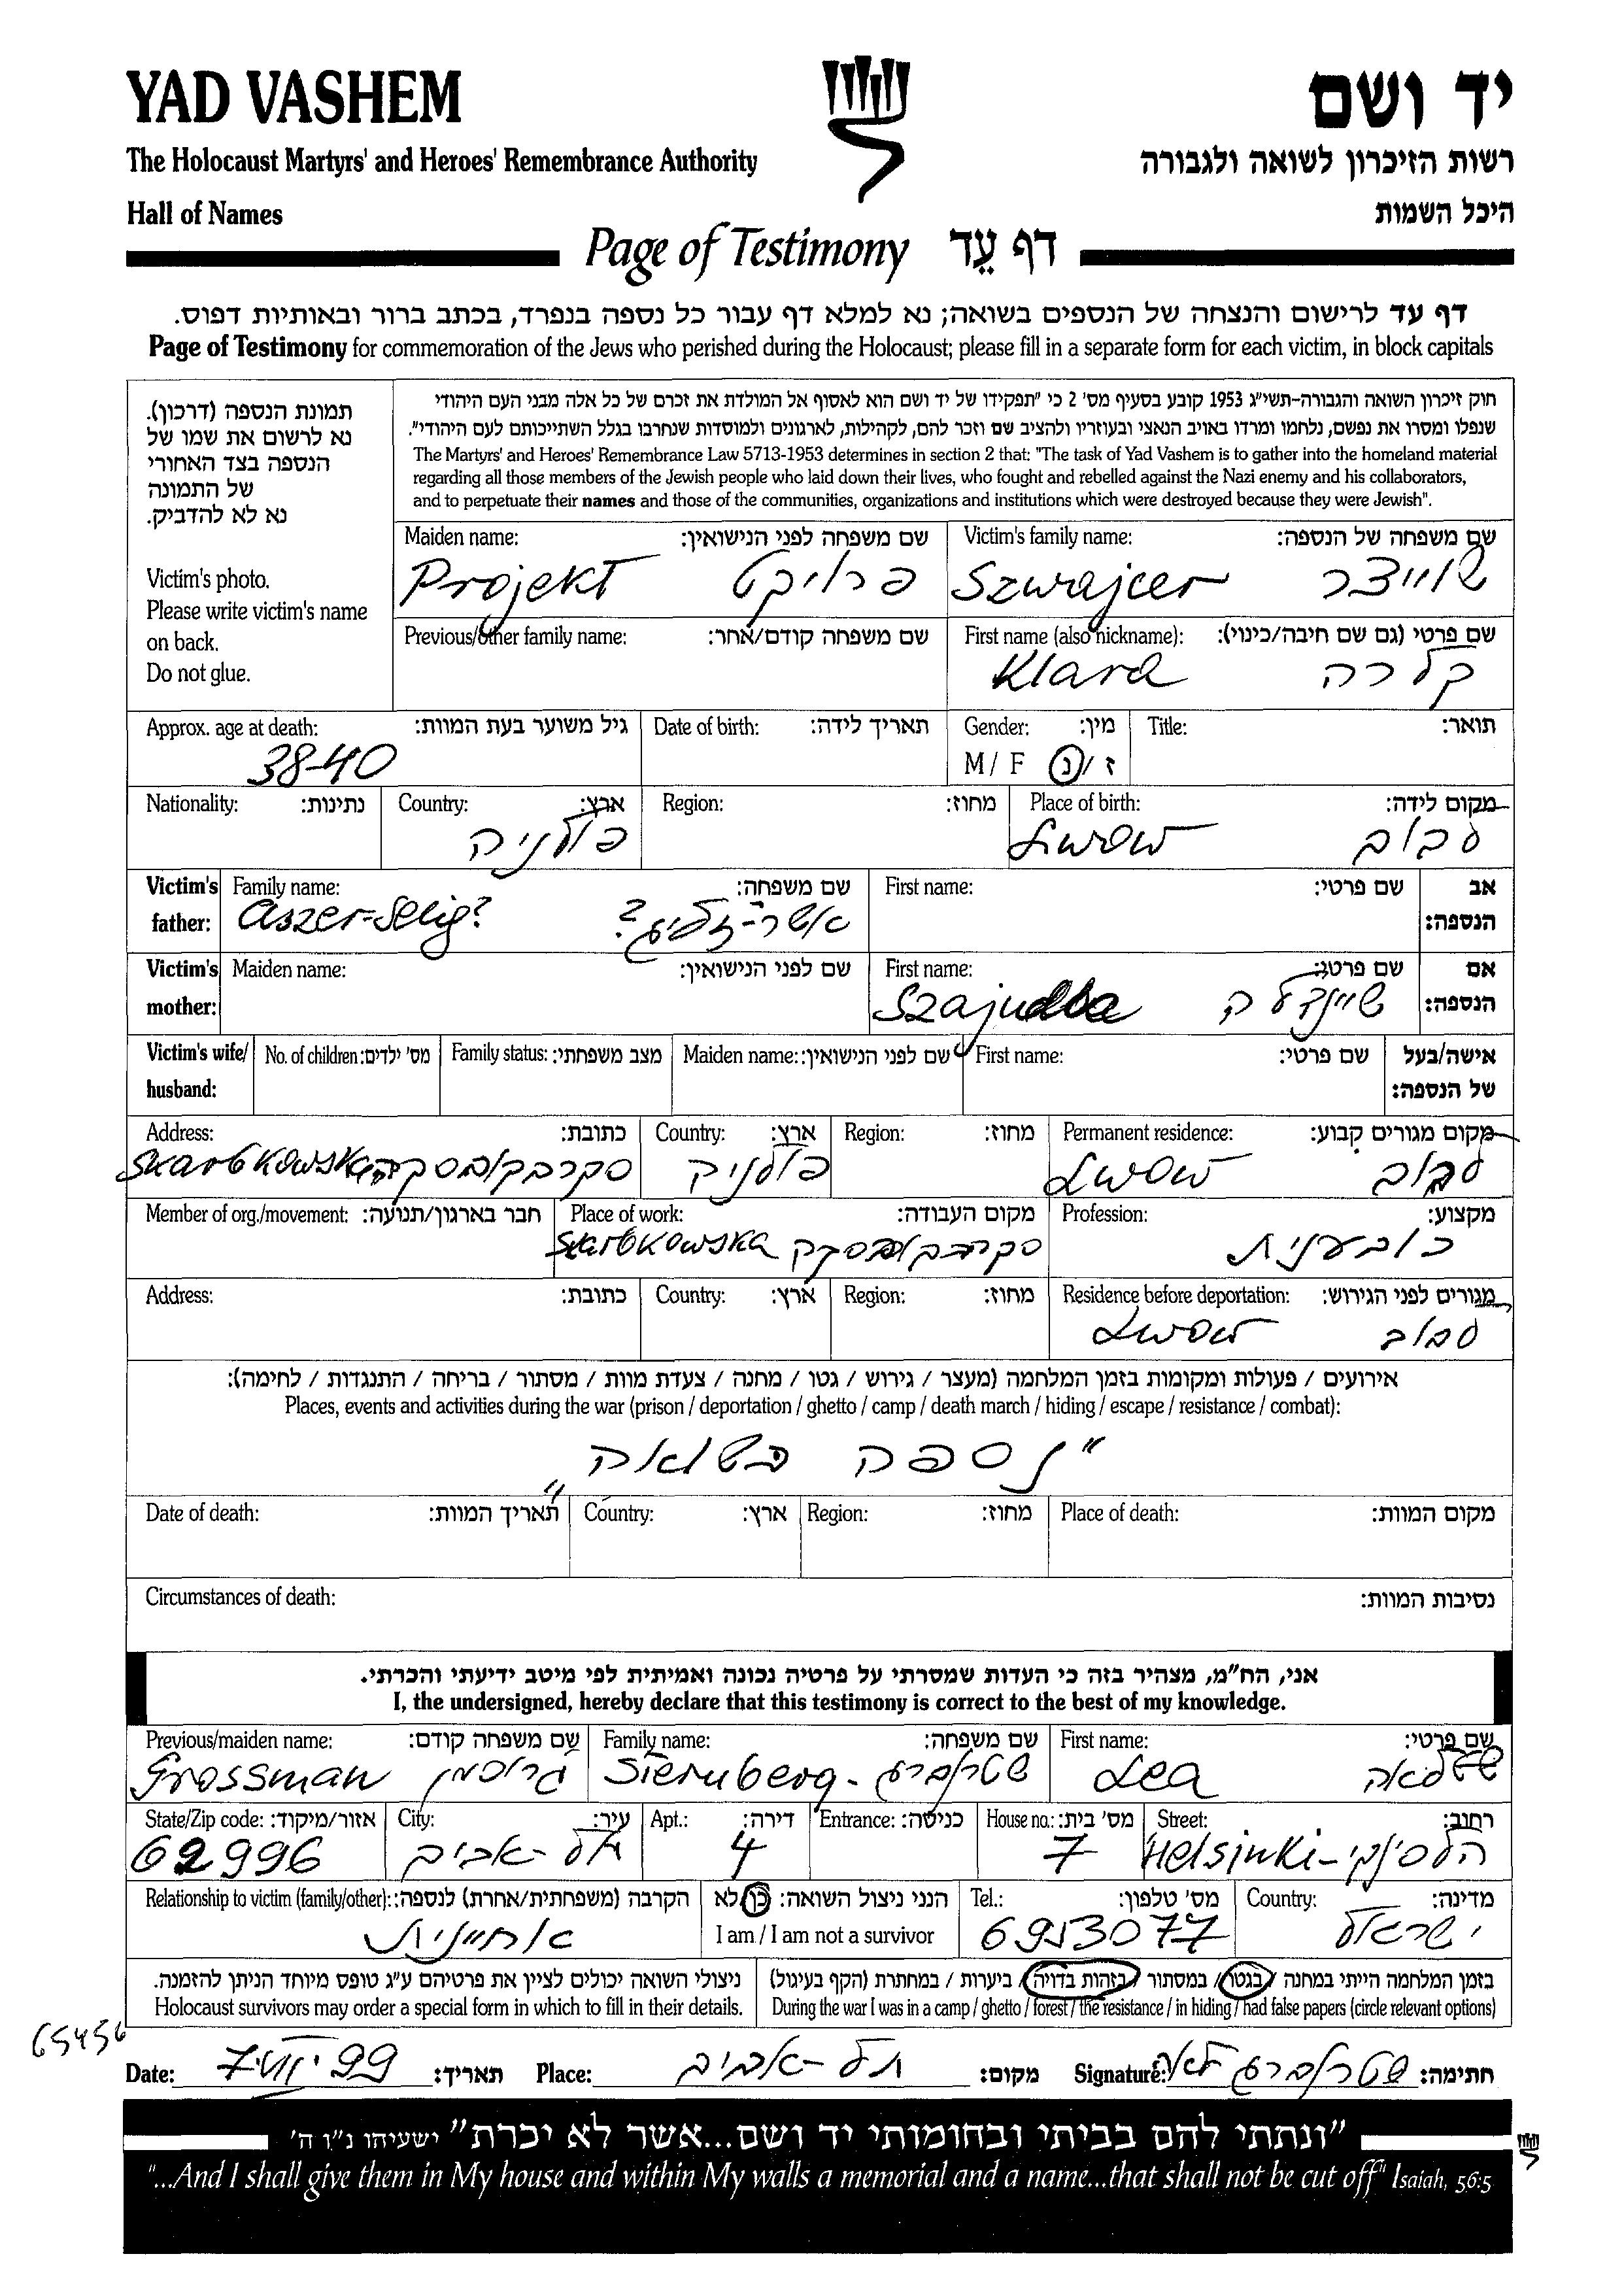 YAD VASHEM
יד ושם
The Holocaust Martyrs' and Heroes' Remembrance Authority
רשות הזיכרון לשואה ולגבורה
Hall of Names
היכל השמות
Page of Testimony דף עֵד
דף עד לרישום והנצחה של הנספים בשואה; נא למלא דף עבור כל נספה בנפרד, בכתב ברור ובאותיות דפוס.
Page of Testimony for commemoration of the Jews who perished during the Holocaust; please fill in a separate form for each victim, in block capitals
תמונת הנספה (דרכון).
נא לרשום את שמו של
הנספה בצד האחורי
של התמונה
נא לא להדביק.
Victim's photo.
Please write victim's name
on back.
Do not glue.
חוק זיכרון השואה והגבורה-תשי"ג 1953 קובע בסעיף מס' 2 כי "תפקידו של יד ושם הוא לאסוף אל המולדת את זכרם של כל אלה מבני העם היהודי
שנפלו ומסרו את נפשם, נלחמו ומרדו באויב הנאצי ובעוזריו ולהציב שם וזכר להם, לקהילות, לארגונים ולמוסדות שנחרבו בגלל השתייכותם לעם היהודי".
The Martyrs' and Heroes' Remembrance Law 5713-1953 determines in section 2 that: "The task of Yad Vashem is to gather into the homeland material
regarding all those members of the Jewish people who laid down their lives, who fought and rebelled against the Nazi enemy and his collaborators,
and to perpetuate their names and those of the communities, organizations and institutions which were destroyed because they were Jewish".
Maiden name: שם משפחה לפני הנישואין: Victim's family name: שם משפחה של הנספה:
Projekt פרויקט Szwajcer שווייצר
Previous/other family name: שם משפחה קודם/אחר: First name (also nickname): שם פרטי (גם שם חיבה/כינוי):
Klara קלרה
Approx. age at death: גיל משוער בעת המוות: Date of birth: תאריך לידה: Gender: מין: Title: תואר:
38-40 M / F ז / נ
Nationality: נתינות: Country: ארץ: Region: מחוז: Place of birth: מקום לידה:
פולניה Lwow לבוב
Victim's father: Family name: שם משפחה: First name: שם פרטי: אב הנספה:
Aszer-Selig? אשר-זליג?
Victim's mother: Maiden name: שם לפני הנישואין: First name: שם פרטי: אם הנספה:
שיינדלה
Victim's wife/ husband: No. of children: מס' ילדים: Family status: מצב משפחתי: Maiden name: שם לפני הנישואין: First name: שם פרטי: אישה/בעל של הנספה:
Address: כתובת: Country: ארץ: Region: מחוז: Permanent residence: מקום מגורים קבוע:
Skarbkowska סקרבקובסקה פולניה Lwow לבוב
Member of org./movement: חבר בארגון/תנועה: Place of work: מקום העבודה: Profession: מקצוע:
Skarbkowska סקרבקובסקה כובענית
Address: כתובת: Country: ארץ: Region: מחוז: Residence before deportation: מגורים לפני הגירוש:
Lwow לבוב
אירועים / פעולות ומקומות בזמן המלחמה (מעצר / גירוש / גטו / מחנה / צעדת מוות / מסתור / בריחה / התנגדות / לחימה):
Places, events and activities during the war (prison / deportation / ghetto / camp / death march / hiding / escape / resistance / combat):
"נספה בשואה"
Date of death: תאריך המוות: Country: ארץ: Region: מחוז: Place of death: מקום המוות:
Circumstances of death: נסיבות המוות:
אני, הח"מ, מצהיר בזה כי העדות שמסרתי על פרטיה נכונה ואמיתית לפי מיטב ידיעתי והכרתי.
I, the undersigned, hereby declare that this testimony is correct to the best of my knowledge.
Previous/maiden name: שם משפחה קודם: Family name: שם משפחה: First name: שם פרטי:
Grossman גרוסמן Sternberg - שטרנברג Lea לאה
State/Zip code: אזור/מיקוד: City: עיר: Apt.: דירה: Entrance: כניסה: House no.: מס' בית: Street: רחוב:
62996 תל-אביב 4 7 Helsinki- הלסינקי
Relationship to victim (family/other): הקרבה (משפחתית/אחרת) לנספה: הנני ניצול השואה: כן/לא Tel.: מס' טלפון: Country: מדינה:
אחיינית I am / I am not a survivor 6953077 ישראל
ניצולי השואה יכולים לציין את פרטיהם ע"ג טופס מיוחד הניתן להזמנה. בזמן המלחמה הייתי במחנה / בגטו / במסתור / בזהות בדויה / ביערות / במחתרת (הקף בעיגול)
Holocaust survivors may order a special form in which to fill in their details. During the war I was in a camp / ghetto / forest / the resistance / in hiding / had false papers (circle relevant options)
65456
Date: 7.VII.99 תאריך: Place: תל-אביב מקום: Signature: שטרנברג לאה חתימה:
"ונתתי להם בביתי ובחומותי יד ושם...אשר לא יכרת" ישעיהו נ"ו ה'
"...And I shall give them in My house and within My walls a memorial and a name...that shall not be cut off" Isaiah, 56:5